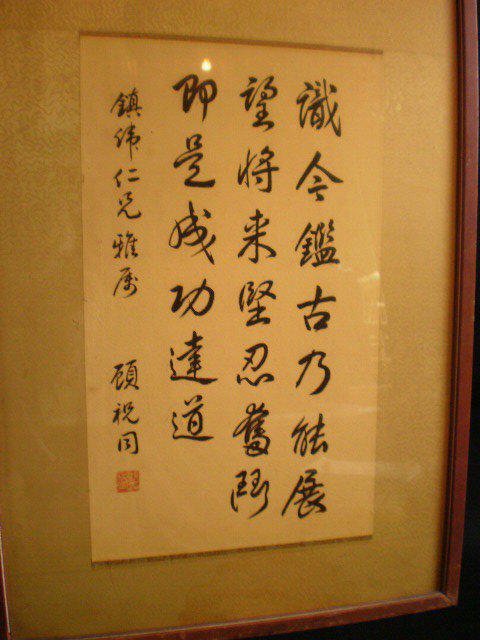 識今鑑古乃能展
望將来堅忍奮鬪
即是成功達道
鎮緯仁兄雅屬
顧祝同